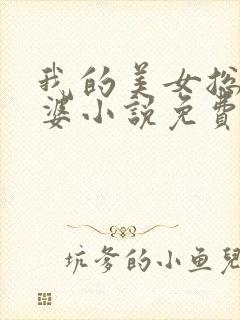 我的美女总
婆小说免费
坑爹的小鱼儿